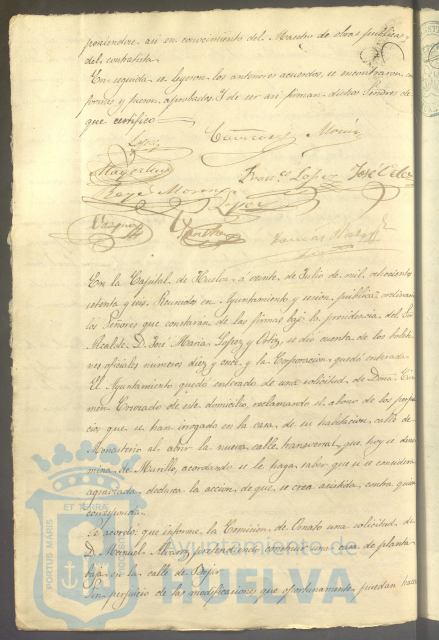 poniendose asi en conocimiento del Maestro de obras publicas y
del contratista.
En seguida se leyeron los anteriores acuerdos, se encontraron con
formes y fueron aprobados. Y de ser asi firman dichos Señores de
que certifico.
López
Franco. López José
López
En la Capital de Huelva á veinte de Julio de mil ochocientos
setenta y seis. Reunidos en Ayuntamiento y sesion publica ordinaria
los Señores que constarán de las firmas bajo la presidencia del Sor.
Alcalde D. José Maria Lopez y Ortiz, se dió cuenta de los boleti
nes oficiales numeros diez y once, y la Corporacion quedó enterada.
El Ayuntamiento quedó enterado de una solicitud de Doña Cár
men de este domicilio, reclamando el abono de los perjui
cios que se han irrogado en la casa de su habitacion, calle de
Monasterio al abrir la nueva calle transversal que hoy se deno
mina de Murillo, acordando se le haga saber que si se considera
agraviada deduzca la accion de que se crea asistida contra quien
corresponda.
Se acordó que informe la Comision de Ornato una solicitud de
D. Manuel Alvarez pretendiendo construir una casa de planta
baja en la calle de
Sin perjuicio de las modificaciones que oportunamente puedan hacer
PORTUS MARIS
ET TERRAE
Ayuntamiento de
HUELVA